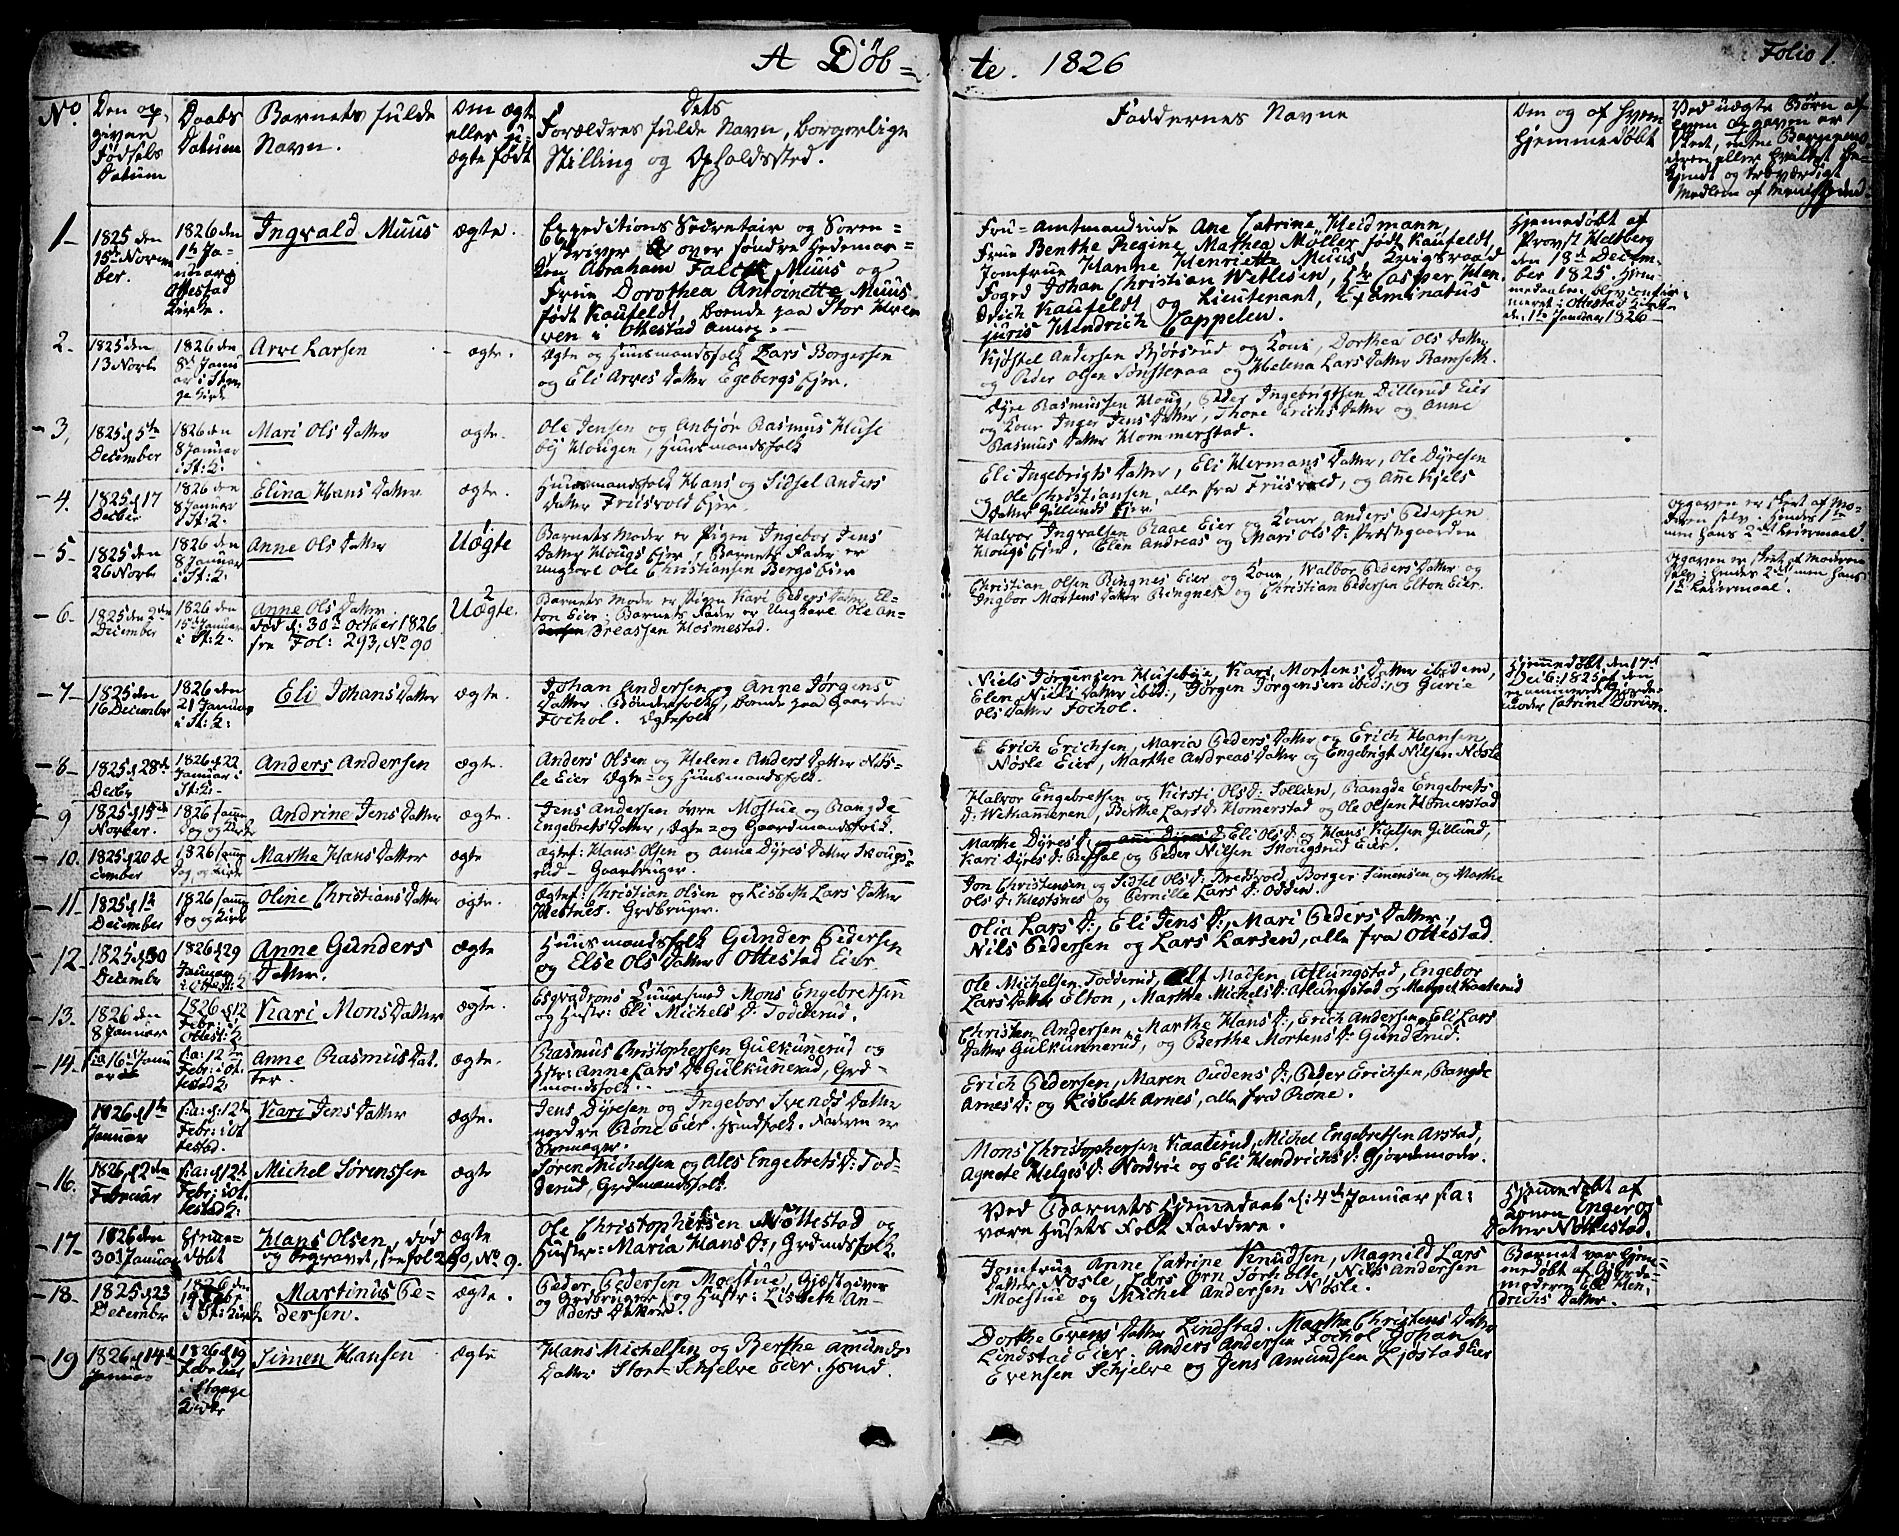 A Døb=
te. 1826
Folio 1.
No.
Den op-
given
Fødsels
Datum
Daabs
Datum
Barnets fulde
Navn.
Om ægte
eller u-
ægte født
Dets
Forældres fulde Navn, borgerlige
Stilling og Opholdssted.
Faddernes Navne
Om og af hvem
hjemmedøbt
Ved uægte Børn af
hvem Opgaven er
skeet, enten Barnemo-
deren eller hvilket be-
kjendt og troværdigt
Medlem af Menigheden
1-
1825 den
15de Novem
ber.
1826 den
1te Ja-
nuar i
Ottestad
Kirke.
Ingvald Muus
ægte.
Expeditions Secretair og Soren=
skriver over søndre Hedemar=
ken Abraham Falck Muus og
Frue Dorothea Antoinette Muus
født Kaufeldt, boende paa Stor Hver
ven i Ottestad Annex.
Fru-Amtmandinde Ane Catrine Heidmann,
Frue Benthe Regine Mathea Møller født Kaufeldt,
Jomfrue Hanne Henriette Muus, Krigsraad
Foged Johan Christian Wetlesen, Hr Casper Hen
drich Kaufeldt og Lieutenant, Examinatus
juris Hendrich Cappelen.
Hjemmedøbt af
Provst Heltberg
den 18de Decem-
ber 1825. Hjem-
medaaben blev confir-
meret i Ottestad Kirke
den 1te Januar 1826
2.
1825 den
13 Novbr
1826 den
8de Janu
ar i Stan
ge Kirke
Arve Larsen
ægte.
Ægte og Huusmandsfolk Lars Borgersen
og Eli Arves Datter Egebergs Ejer.
Kjøstel Andersen Bjørsrud og Kone, Dorthea Ols Datter
og Peder Olsen Sønsteraa og Helena Lars Datter Ramseth.
3,
1825 d 5te
December
1826 den
8 Januar
i St: K:
Mari Ols Datter
ægte.
Ole Jensen og Anbjør Rasmus Huse
by Hougen, Huusmandsfolk
Dyre Rasmussen Houg, Peder Ingebrigtsen Dillerud Eier
og Kone Inger Jens Datter, Thore Erichs Datter og Anne
Rasmus Datter Hommerstad.
4.
1825 d 17
Decber
1826 den
8 Januar
i St: K:
Elina Hans Datter
ægte.
Huusmandsfolk Hans og Sidsel Anders
Datter Friisvold Ejer.
Eli Ingebrigts Datter, Eli Hermans Datter, Ole Dyresen
og Ole Christiansen, alle fra Friisvold, og Anne Kjels
Datter Gillunds Ejer.
5-
1825 den
26 Novbr
1826 den
8 Januar
i St: K:
Anne Ols Datter
Uægte
Barnets Moder er Pigen Ingebor Jens
Datter Hougs Ejer, Barnets Fader er
ungkarl Ole Christiansen Bergs Eier
Halvor Ingvalsen Raae Eier og Kone, Anders Pedersen
Hougs Ejer, Elen Andreas og Mari Ols D: Præstgaarden
Opgaven er skeet af Mo-
deren selv. Hendes 1te
men hans 2det Leiermaal.
6-
1825 den 2den
December
1826 den
15 Januar
i St: K:
Anne Ols Datter.
død d: 30te October 1826
see Fol: 293, No 90
2
Uægte.
Barnets Moder er Pigen Kari Peders Datter El-
ton Eier; Barnets Fader er Ungkarl Ole An-
dreassen Hosmestad.
Christian Olsen Ringnes Eier og Kone, Walbor Peders Datter og
Ingbor Mortens Datter Ringnes og Christian Pedersen Elton Eier.
Opgaven er skeet af Moderen
selv. Hendes 2det men hans
1te Leiermaal.
7-
1825 den
16 December
1826 den
21 Januar
i St: K:
Eli Johans Datter
ægte.
Johan Andersen og Anne Jørgens
Datter. Bønderfolk, boende paa Gaarden
Fochol. Ægtefolk
Niels Jørgensen Huseboie, Kari Mortens Datter ibidem,
Elen Niels Datter ibid:, Jørgen Jørgensen ibid:, og Gurie
Ols Datter Fochol.
Hjemmedøbt den 17de
Dec: 1825 af den
examinerede Gjorde-
moder Catrine Dorum.
8-
1825 d 28de
Decbr
1826 d 22
Januar i
St: K:
Anders Andersen
ægte.
Anders Olsen og Helene Anders Datter Nøs-
le Eier Ægte= og Huusmandsfolk.
Erich Erichsen, Maria Peders Datter og Erich Hansen
Nøsle Eier, Marthe Andreas Datter og Engebrigt Nilsen Nøsle
9
1825 d 15de
Novber.
1826 samme
Dag og Kirke
Andrine Jens Datter
ægte.
Jens Andersen øvre Mostue og Rangde
Engebrets Datter, Ægte= og Gaardmandsfolk.
Halvor Engebretsen og Kirsti Ols D: Tollien, Rangde Engebrets
D: Wethameren, Berthe Lars D: Homerstad og Ole Olsen Homerstad
10.
1825 d 20 De
cember
1826 samme
Dag og Kirke
Marthe Hans Datter
ægte
Ægtef: Hans Olsen og Anne Dyres Datter Skougs-
rud- Gaarbruger.
Marthe Dyres D: Eli Ols D: og Hans Kielsen Gillund,
Kari Dyres D: og Peder Nilsen Skougsrud Eier.
11-
1825 d 12
December
1826 samme
Dag og Kirke
Oline Christians Datter
ægte.
Ægtef: Christian Olsen og Lisbeth Lars Datter
Hestnes. Grdbruger.
Jon Christensen og Sidsel Ols D: Bredvold, Borger Simensen og Marthe
Ols D: Hestsnes og Pernille Lars D: Odden.
12-
1825 d 30
December
1826 d 29
Januar
i Ottest: K
Anne Gunders
Datter.
ægte
Huusmandsfolk Gunder Pedersen
og Else Ols Datter Ottestad Eier.
Olia Lars D:, Eli Jens D:, Mari Peders Datter,
Nils Pedersen og Lars Larsen, alle fra Ottestad.
13.
1826 den
8 Januar
1826 d 12
Febr: i
Ottest: K
Kari Mons Datter
ægte.
Esqvadrons Mons Engebretsen
og Hustr: Eli Michels D: Todderud.
Ole Michelsen Todderud, Madsen, Atlungstad, Engebor
Lars Datter Elton, Marthe Michels D: Atlungstad og Kaaterud
14.
16 Janu
ar
Ea: 12te
Febr: i Ot
testad K:
Anne Rasmus Dat-
ter.
ægte.
Rasmus Christophersen Gulkunerud og
Hstr: Anne Lars D: Gulkunerud, Grd-
mandsfolk.
Christen Andersen, Marthe Hans D:, Erich Andersen, Eli Lars
Datter Gulkunnerud, og Berthe Mortens D: Gunderud.
1826 d 1te
Januar
Ea: d: 12te
Febr: i Ot
testad.
Kari Jens Datter
ægte.
Jens Dyresen og Ingebor Svends Datter
nordre Røne Eier. Hsmdfolk. Faderen er
Skomager.
Erich Pedersen, Maren Oudens D: Peder Erichsen, Rangde
Arnes D: og Lisbeth Arnes, alle fra Røne.
16.
1826, d 2den
Februar
Ea: d: 12te
Febr: i Ot
testad K:
Michel Sørenssen
ægte
Søren Michelsen og Ales Engebrets D: Tod-
derud, Grdmandsfolk.
Mons Christophersen Kaaterud, Michel Engebretsen Arstad,
Agnete Helges D: Nordvie og Eli Hendrichs D: Gjordemoder.
17-
1826 den
30 Januar
Hjemme-
døbt
Hans Olsen, død
og begravet, see fol 290, No. 9.
ægte
Ole Christophersen Nøttestad og
Hustr: Maria Hans D:, Grdmdsfolk.
Ved Barnets Hjemmedaab d: 4de Januar
vare Husets Folk Faddere.
Hjemmedøbt af
Konen Enger Ols
Datter Nøttestad.
18-
1825 d 23
December
1826 den
19 Febr
i St: Kirke
Martinus Pe-
dersen.
ægte.
Peder Pedersen Moestue, Gjæstgiver
og Grdbruger og Hustr: Lisbeth An
ders Datter
Jomfrue Anne Catrine Knudsen, Magnild Lars
Datter Nøsle, Lars Ørn Torholte, Nils Andersen
Moestue og Michel Andersen Nøsle.
Barnet var hjem-
medøbt af Gjorde-
moderen Eli Hen-
drichs Datter.
19
1826 d 14de
Januar
1826 d 19
Februar
i Stange
Kirke
Simen Hansen
ægte
Hans Michelsen og Berthe Amunds
Datter Stort-Schjelve Eier. Hsmd.
Dorthe Evens Datter Lindstad. Marthe Christens Datter
Lindstad Eier. Anders Andersen Fochol. Johan
Evensen Schjelve og Jens Amundsen Ljøstad Eier